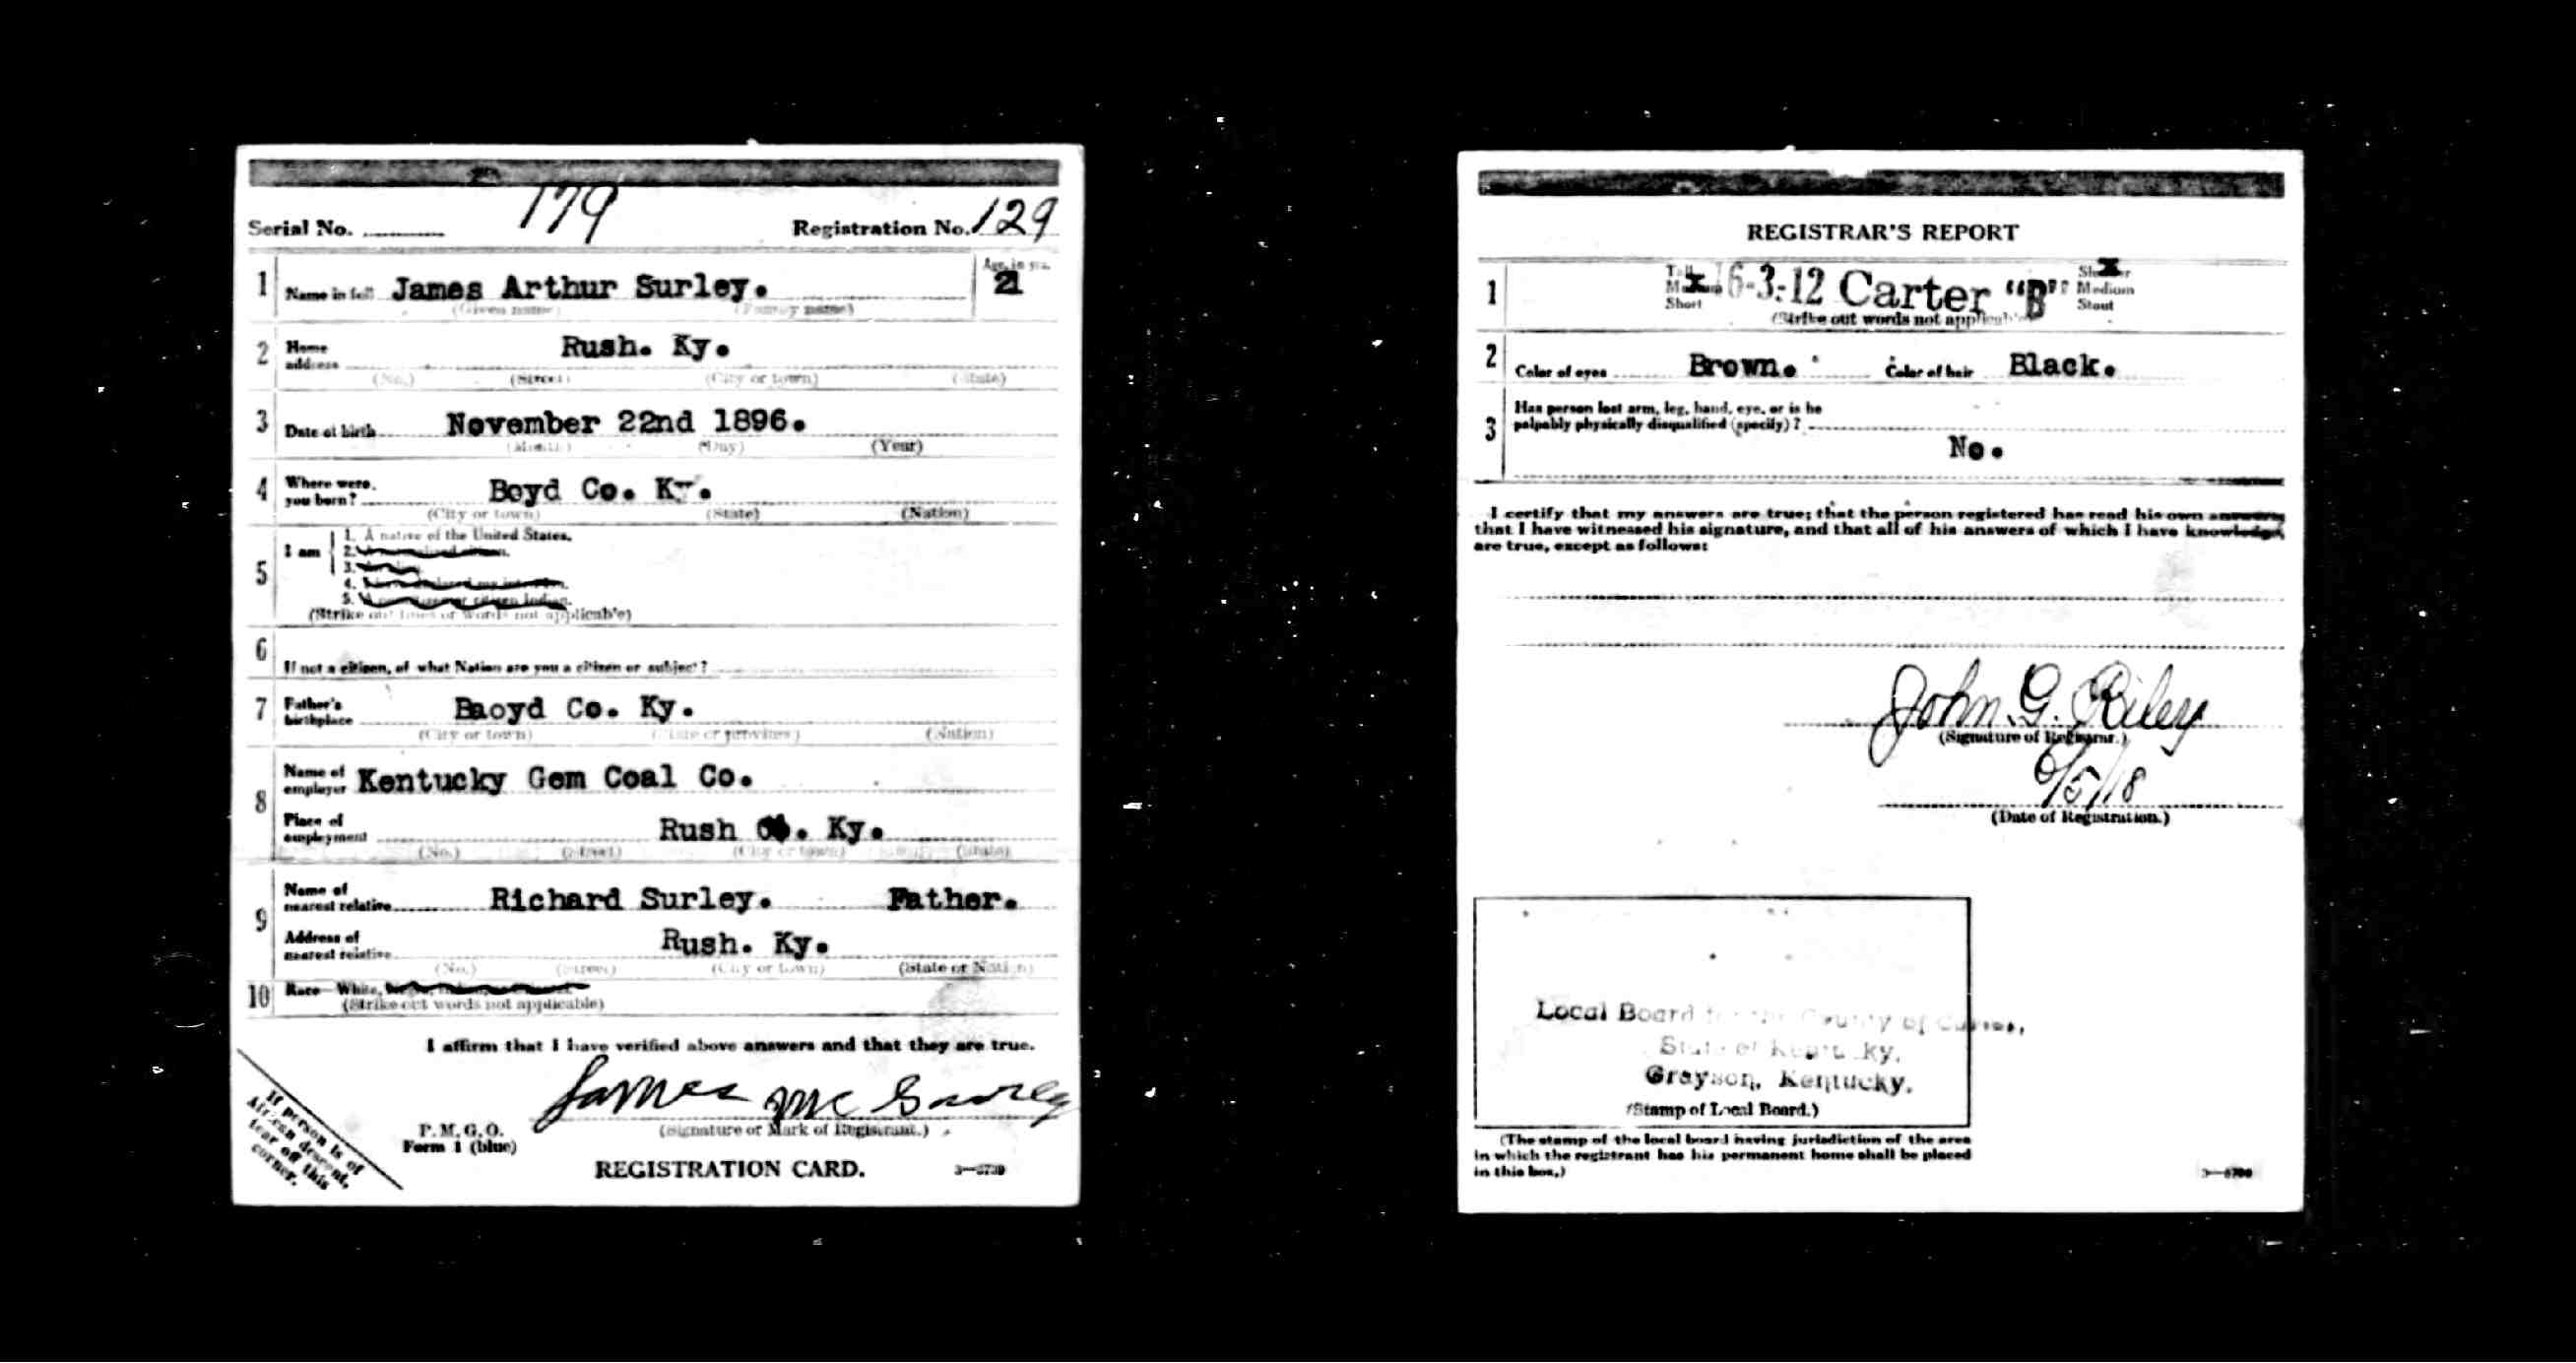 Serial No. 179 Registration No. 129
1 Name in full James Arthur Surley. Age, in yrs. 21
(Given name) (Family name)
2 Home address Rush. Ky.
(No.) (Street) (City or town) (State)
3 Date of birth November 22nd 1896.
(Month) (Day) (Year)
4 Where were you born? Boyd Co. Ky.
(City or town) (State) (Nation)
5 I am
1. A native of the United States.
2.
3.
4.
5.
(Strike out lines or words not applicable)
6 If not a citizen, of what Nation are you a citizen or subject?
7 Father's birthplace Baoyd Co. Ky.
(City or town) (State or province) (Nation)
8 Name of employer Kentucky Gem Coal Co.
Place of employment Rush Ky.
(No.) (Street) (City or town) (State)
9 Name of nearest relative Richard Surley. Father.
Address of nearest relative Rush. Ky.
(No.) (Street) (City or town) (State or Nation)
10 Race—White,
(Strike out words not applicable)
I affirm that I have verified above answers and that they are true.
James
P. M. G. O.
Form 1 (blue)
(Signature or Mark of Registrant.)
REGISTRATION CARD.
If person is of
African descent,
tear off this
corner.
REGISTRAR'S REPORT
1 Tall 16-3-12 Carter "B" Medium
Short Stout
(Strike out words not applicable)
2 Color of eyes Brown. Color of hair Black.
3 Has person lost arm, leg, hand, eye, or is he
palpably physically disqualified (specify)?
No.
I certify that my answers are true; that the person registered has read his own answers,
that I have witnessed his signature, and that all of his answers of which I have knowledge,
are true, except as follows:
John G. Riley
(Signature of Registrar.)
6/5/18
(Date of Registration.)
Local Board for the County of Carter,
State of Kentucky,
Grayson, Kentucky.
(Stamp of Local Board.)
(The stamp of the local board having jurisdiction of the area
in which the registrant has his permanent home shall be placed
in this box.)